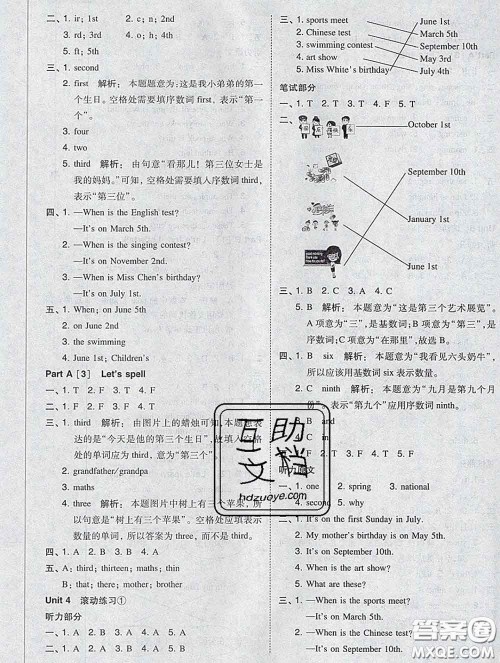 二、1. ir; 1st 2. c; n; 2nd
3. rd; 3rd 4. o; h; 4th
5. ft; 5th
三、1. second
2. first 解析：本题题意为：这是我小弟弟的第一
个生日。空格处需要填序数词 first，表示“第一
个”。
3. four
4. two
5. third 解析：由句意“看那儿！第三位女士是
我的妈妈。”可知，空格处需要填入序数词 third，
表示“第三位”。
四、1. —When is the English test?
—It's on March 5th.
2. —When is the singing contest?
—It's on November 2nd.
3. —When is Miss Chen's birthday?
—It's on July 1st.
五、1. When; on 2nd
2. on June 2nd
3. in the summer
4. June 1st; Children's
Part A [3] Let's spell
一、1. T 2. F 3. T 4. T
二、1. F 2. F 3. T 4. F 5. T
三、1. third 解析：由图片上的蜡烛可知，本题想表
达的是“今天是他的第三个生日”，故填入空格
处的单词应为 third，表示“第三个”。
2. grandfather/grandpa
3. maths
4. three 解析：本题图片中树上有三个苹果，所
以句意是“树上有三个苹果”。空格处需要填表
数量的单词，所以答案为 three，而不是 third。
四、1. A 2. B 3. B 4. A 5. A
五、A: third; thirteen; maths; thin
B: that; there; mother; brother
Unit 4 滚动练习①
听力部分
一、1. A 2. B 3. A 4. A 5. A
1. sports meet June 1st
2. Chinese test March 5th
3. swimming contest September 10th
4. sports art May 3rd
5. Miss White's birthday July 4th
笔试部分
一、1. T 2. T 3. T 4. F 5. T
二、
October 1st
September 10th
January 1st
June 1st
三、1. B 2. B 3. A 4. A 5. B
5. B 解析：本题意为“这是第三个艺术展览”。
A 项意为“三”，是基数词；B 项意为“第三”，是序
数词；C 项意为“在那里”，故选 B。
1. B six 解析：本题题意为“我看见六头奶牛”，
所以应该用基数词 six 表示数量。
2. C ninth 解析：本题意为“九月是第九个
月”，表示“第九个”应用序数词 ninth。
3. B and
4. C in
五、1. F 2. T 3. F 4. F 5. T
听力原文
一、1. one 2. spring 3. national
4. second 5. why
二、1. It's on the first Sunday in July.
2. My mother's birthday is on May 5th.
3. It's on September 10th.
4. It's on November 3rd.
5. What are these?
三、1. —When is the sports meet?
—It's on September 10th.
2. —When is the Chinese test?
—It's on March 5th.
互助文档
hdzuoye.com
答案圈
MXQE.COM